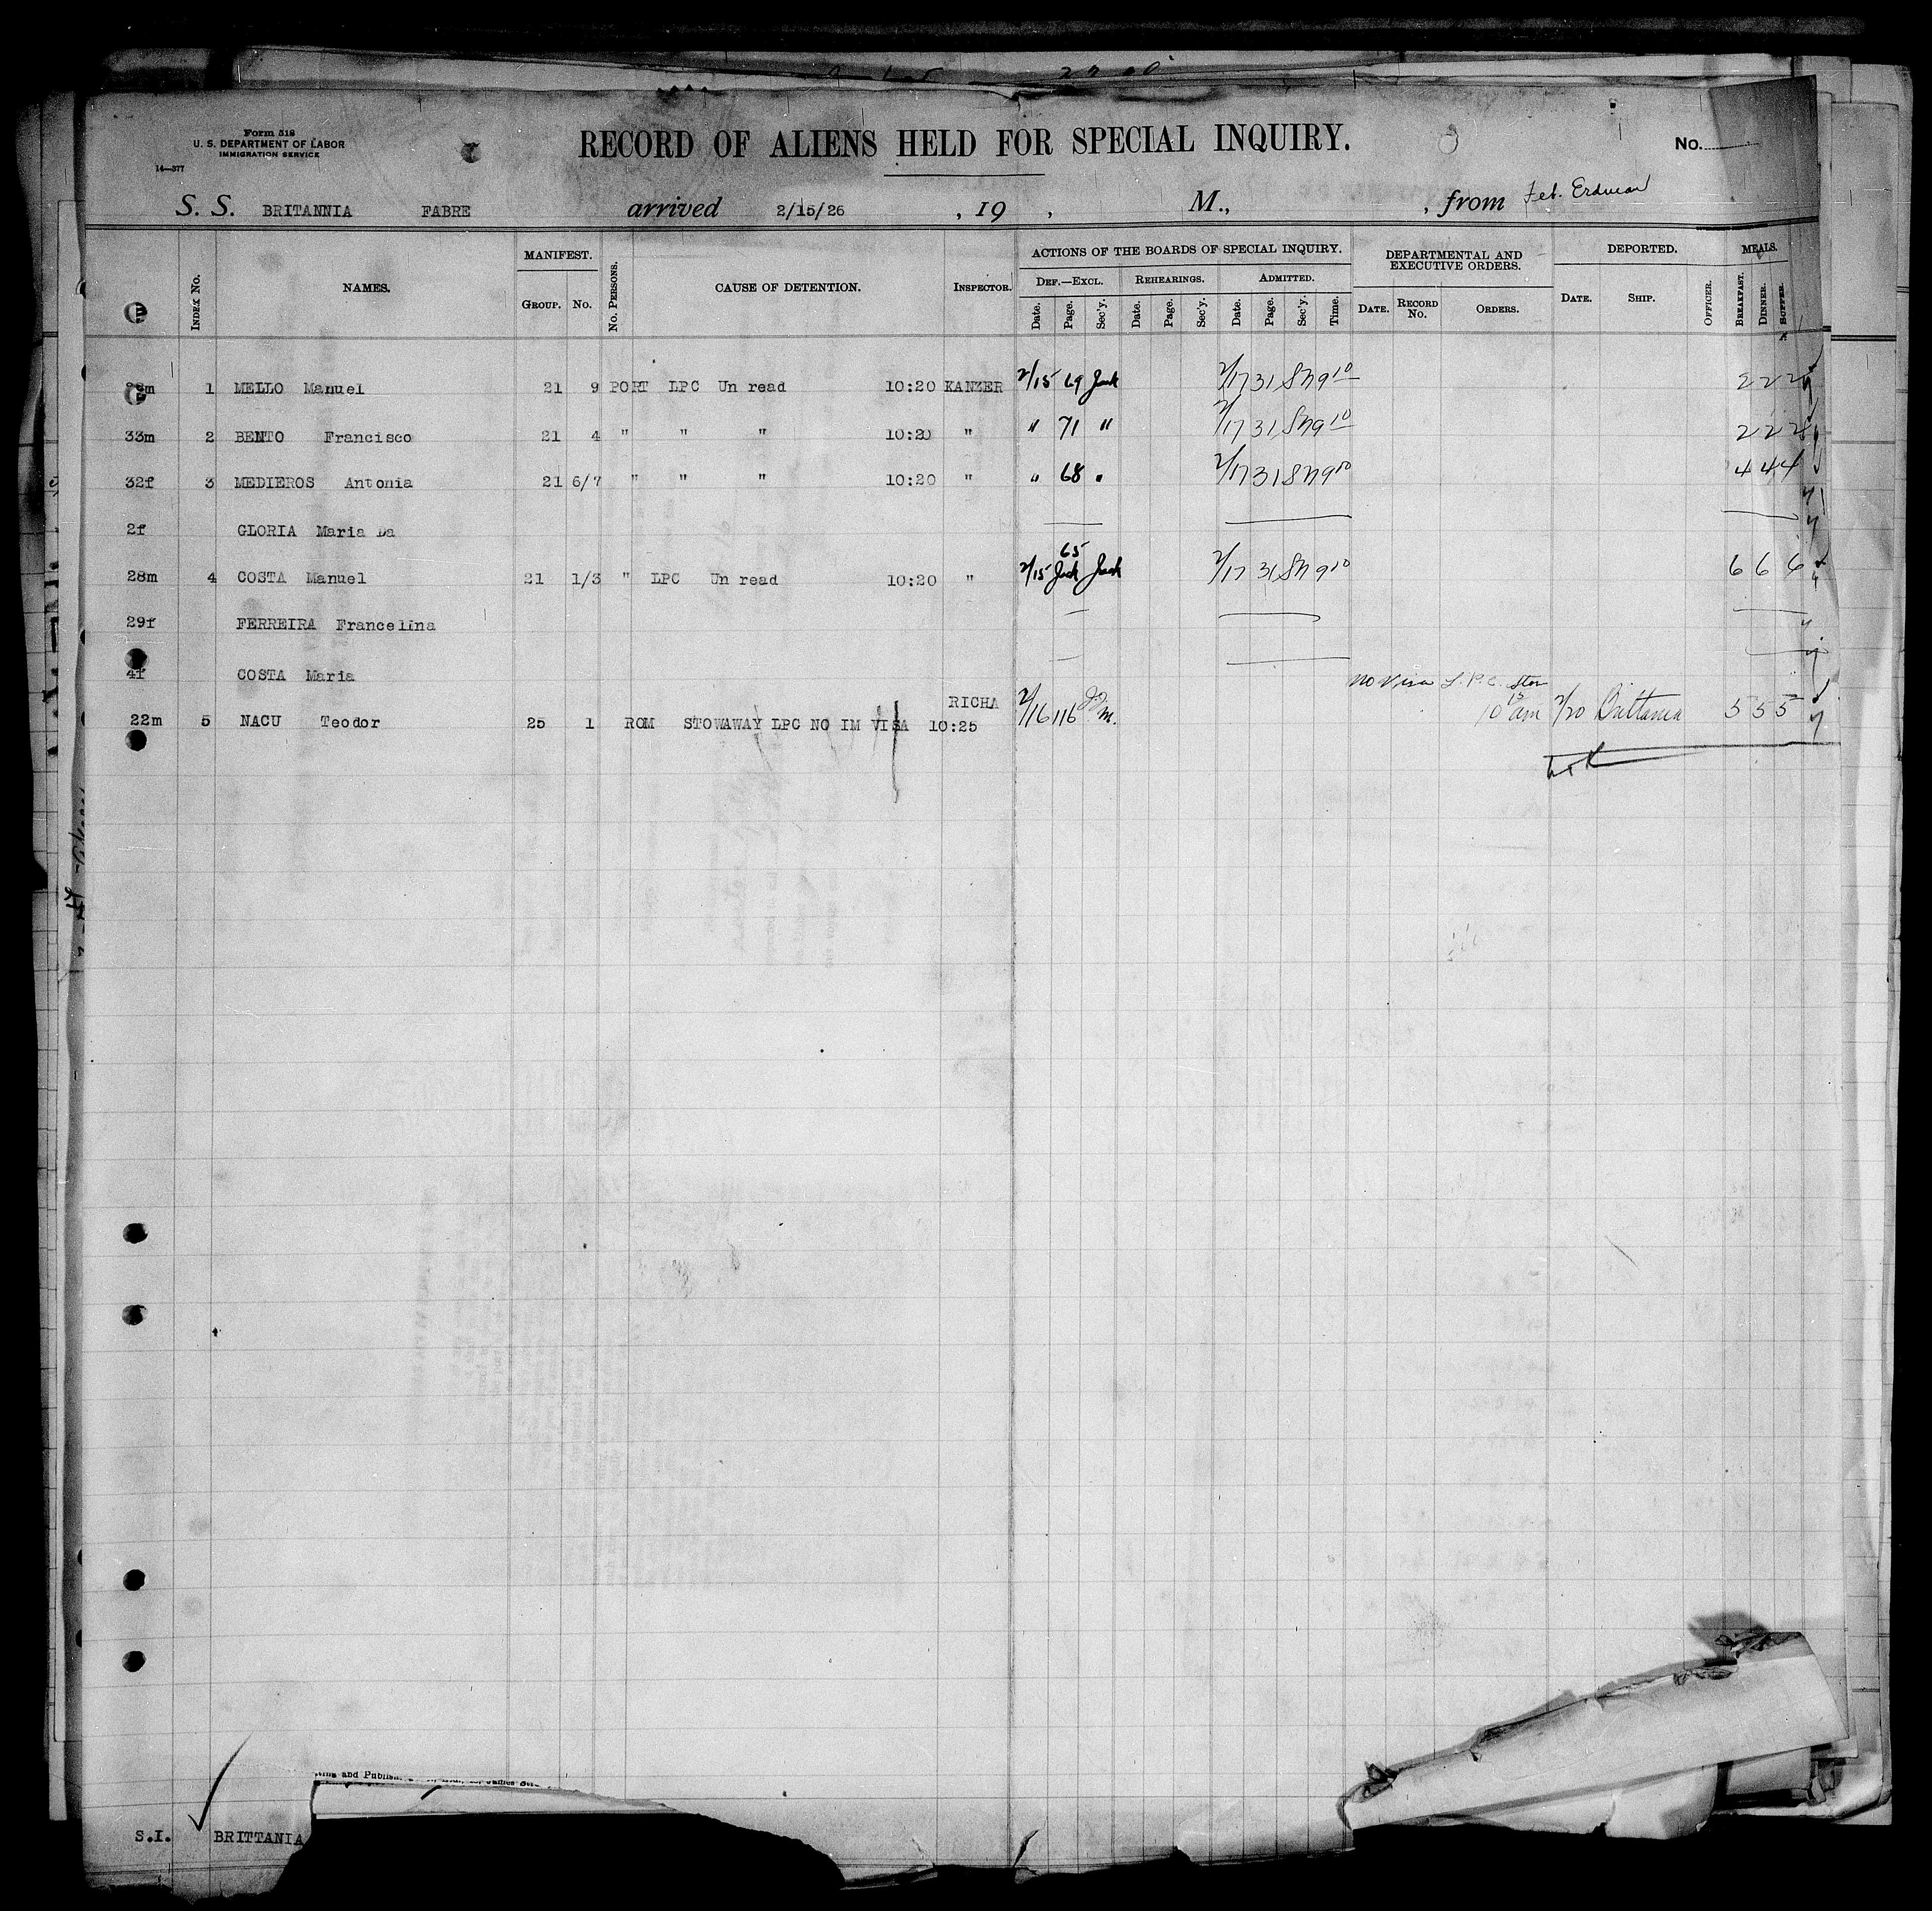 Form 518
U. S. DEPARTMENT OF LABOR
IMMIGRATION SERVICE
14—377
RECORD OF ALIENS HELD FOR SPECIAL INQUIRY.
No.
S. S. BRITANNIA FABRE arrived 2/15/26 , 19 , M., , from
INDEX No. NAMES. MANIFEST. GROUP. No. No. PERSONS. CAUSE OF DETENTION. INSPECTOR. ACTIONS OF THE BOARDS OF SPECIAL INQUIRY. DEF.—EXCL. Date. Page. Sec'y. REHEARINGS. Date. Page. Sec'y. ADMITTED. Date. Page. Sec'y. Time. DEPARTMENTAL AND EXECUTIVE ORDERS. DATE. RECORD No. ORDERS. DEPORTED. DATE. SHIP. OFFICER. MEALS. BREAKFAST. DINNER. SUPPER.
1 MELLO Manuel 21 9 PORT LPC Un read 10:20 KANZER 2/15 69 Jack 2/17 31 9 10 2 2 2
33m 2 BENTO Francisco 21 4 " " " 10:20 " " 71 " 2/17 31 9 10 2 2 2
32f 3 MEDIEROS Antonia 21 6/7 " " " 10:20 " " 68 " 2/17 31 9 10 4 4 4
2f GLORIA Maria Da
28m 4 COSTA Manuel 21 1/3 " LPC Un read 10:20 " 2/15 65 Jack Jack 2/17 31 9 10 6 6 6
29f FERREIRA Francelina
4f COSTA Maria
No Visa L.P.C. Stow
22m 5 NACU Teodor 25 1 ROM STOWAWAY LPC NO IM VISA 10:25 RICHA 2/16 116 10 15 am 2/20 Brittania 5 5 5
S.I. BRITTANIA